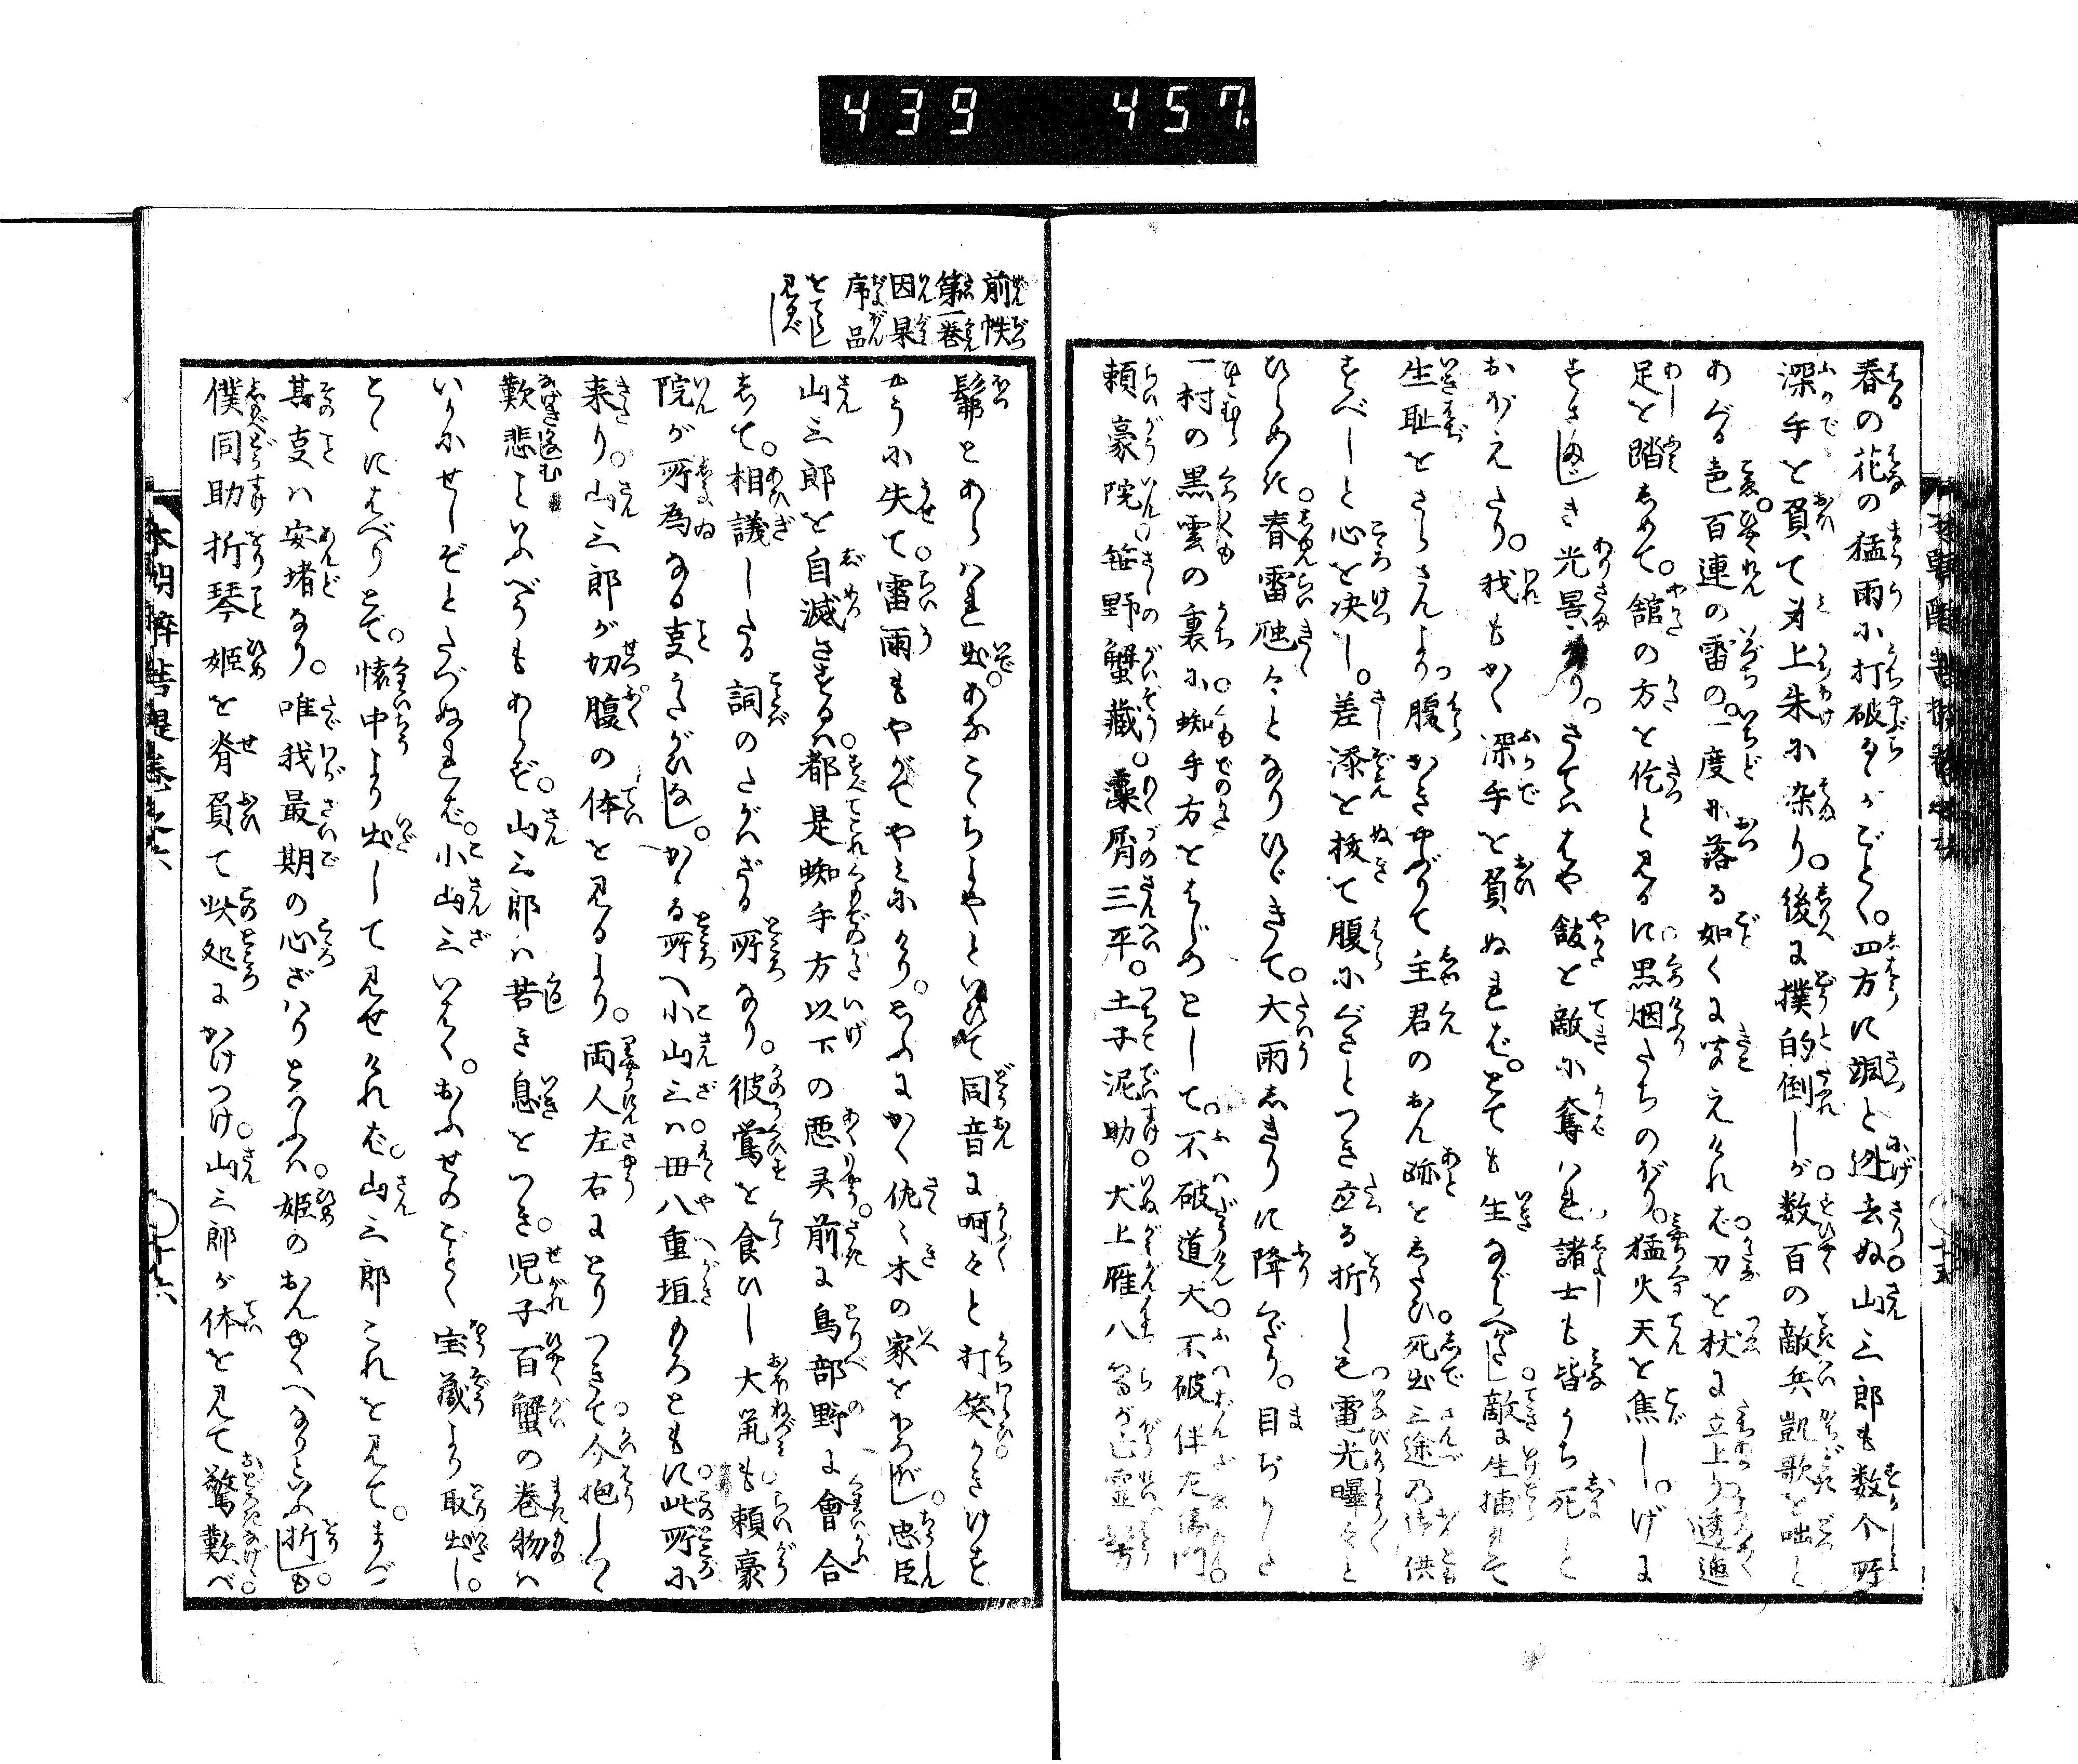 439 457.
春の花の猛雨に打破るゝがごとく。四方に颯と迯去ぬ山三郎も数个所
深手を負て身上朱に染り。後に撲的倒しが数百の敵兵凱歌を咄と
あぐる声百連の雷の。一度に落る如くに聞えければ刀を杖に立上り透迤
足を踏しめて。舘の方を佐と見るに黒烟たちのぼり。猛火天を焦し。げに
すさまじき光景なり。さてはゝや舘を敵に奪はれ諸士も皆うち死と
おぼえたり。我もかく深手を負ぬれば。とても生ながらへがたし敵に生捕れて
生恥をさらさんより腹かきやぶりて主君のおん跡をしたひ。死出三途の御供
すべしと心を决し。差添を抜て腹にぐさとつき立る折しも電光曄々と
ひらめき。春雷𧈢々となりひゞきて。大雨しきりに降くだり。目ぢかき
一村の黒雲の裏に。蜘手方をはじめとして。不破道犬。不破伴左衛門。
頼豪院笹野蟹藏。藻屑三平。土子泥助。犬上雁八等が亡霊髣
髴とあらはれ出。あなこゝちよやといひて同音に呵々と打笑かきけす
やうに失て。雷雨もやがてやみにけり。しかるにかく佐々木の家をほろぼし。忠臣
山三郎を自滅さする。都是蜘手方以下の悪灵前に鳥部野に會合
して。相議したる詞のたがはざる所なり。彼鴬を食ひし大鼠も頼豪
院が所為なる支うたがひなし。かゝる所へ小山三は母八重垣もろともに此所に
来り。山三郎が切腹の体を見るより。両人左右にとりつきて介抱しつゝ
歎悲こといふべうもあらず。山三郎は苦き息をつき。児子百蟹の巻物は
いかにせしぞとたづぬれば。小山三いはく。おふせのごとく宝藏より取出し。
とくにはべりとぞ。懐中より出して見せければ。山三郎これを見て。まづ
其支は安堵なり。唯我最期の心ざはりとなるは。姫のおんゆくへなりといふ折しも
僕同助折琴姫を脊負て此処にかけつけ。山三郎が体を見て驚歎べ
前帙
第一巻
因果
序品
をてらし
見るべし
本朝酔菩提巻之六
十六
十五